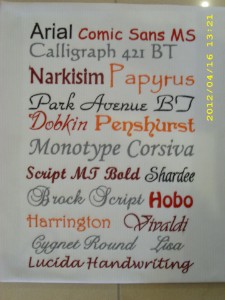 Arial Comic Sans MS
Calligraph 421 BT
Narkisim Papyrus
Park Avenue BT
Dobkin Penshurst
Monotype Corsiva
Script MT Bold Shardee
Brock Script Hobo
Harrington Vivaldi
Cygnet Round Lisa
Lucida Handwriting
2012/04/16 13:21